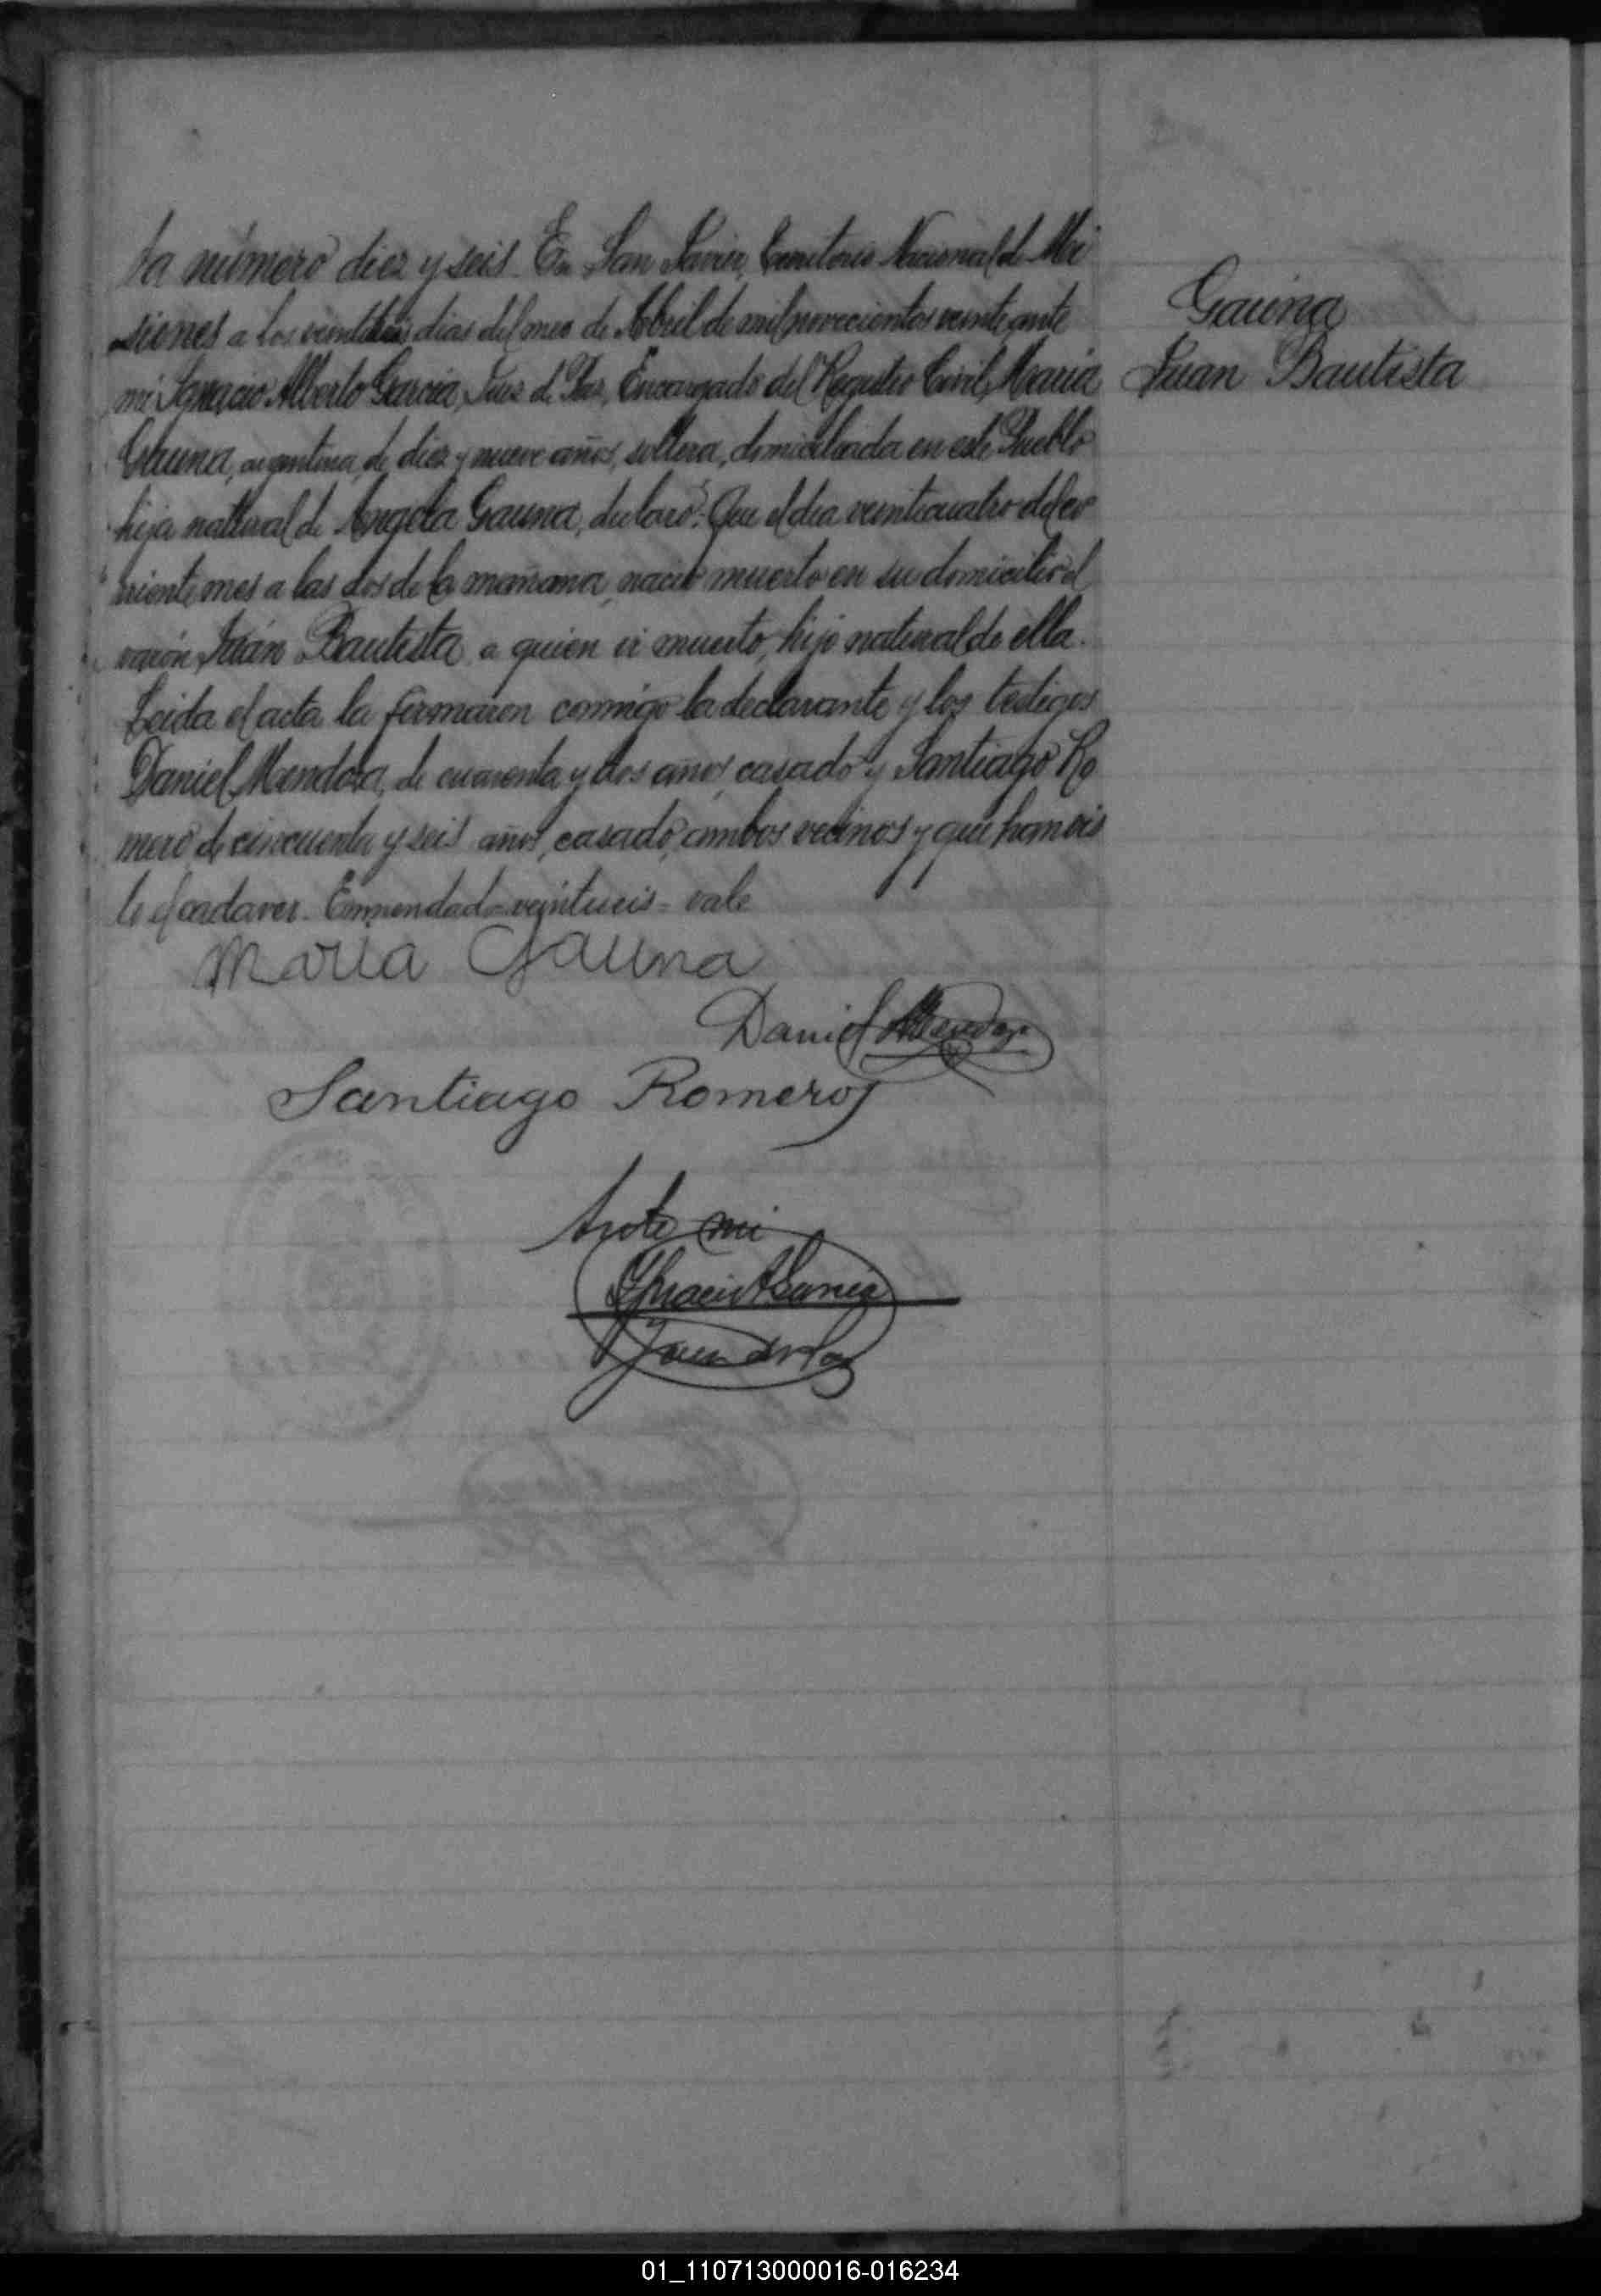 ta número diez y seis. En San Javier, Territorio Nacional de Mi
siones a los veintiseis dias del mes de Abril de mil novecientos veinte, ante
mi Ignacio Alberto Garcia, Juez de Paz, Encargado del Registro Civil, Maria
Gauna, argentina, de diez y nueve años, soltera, domiciliada en este Pueblo
hija natural de Angela Gauna, declaró: Que el dia veinticuatro del co
rriente mes a las dos de la mañana, nació muerto en su domicilio el
varón Juan Bautista, a quien vi muerto, hijo natural de ella.
Leida el acta la firmaron conmigo la declarante y los testigos
Daniel Mendoza, de cuarenta y dos años, casado y Santiago Ro
mero, de cincuenta y seis años, casado, ambos vecinos y que han vis
to el cadaver. Enmendado = veintiseis = vale
Maria Gauna
Daniel Mendoza
Santiago Romero
Ante mi
Ignacio A Garcia
Juez de Paz
Gauna
Juan Bautista
01_110713000016-016234